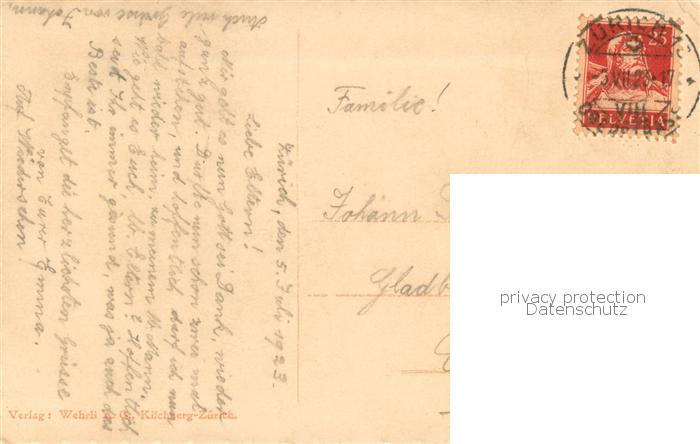 Zürich, den 5. Juli 1923.
Liebe Eltern!
Mir geht es nun Gott sei Dank, wieder
ganz gut. Durfte nun schon zwei mal
aufstehen, und hoffentlich darf ich nun
bald wieder heim, zu meinem lb. Mann.
Wie geht es Euch, lb. Eltern? Hoffentlich
seid Ihr immer gesund, was ja auch das
Beste ist.
Empfanget die herzlichsten Grüsse
von Eurer Emma.
Auf Wiedersehen!
Auch viele Grüsse von Johann.
Familie!
Johann
Gladb
HELVETIA
25
ZÜRICH
VIII
privacy protection
Datenschutz
Verlag: Wehrli A.-G., Kilchberg-Zürich.